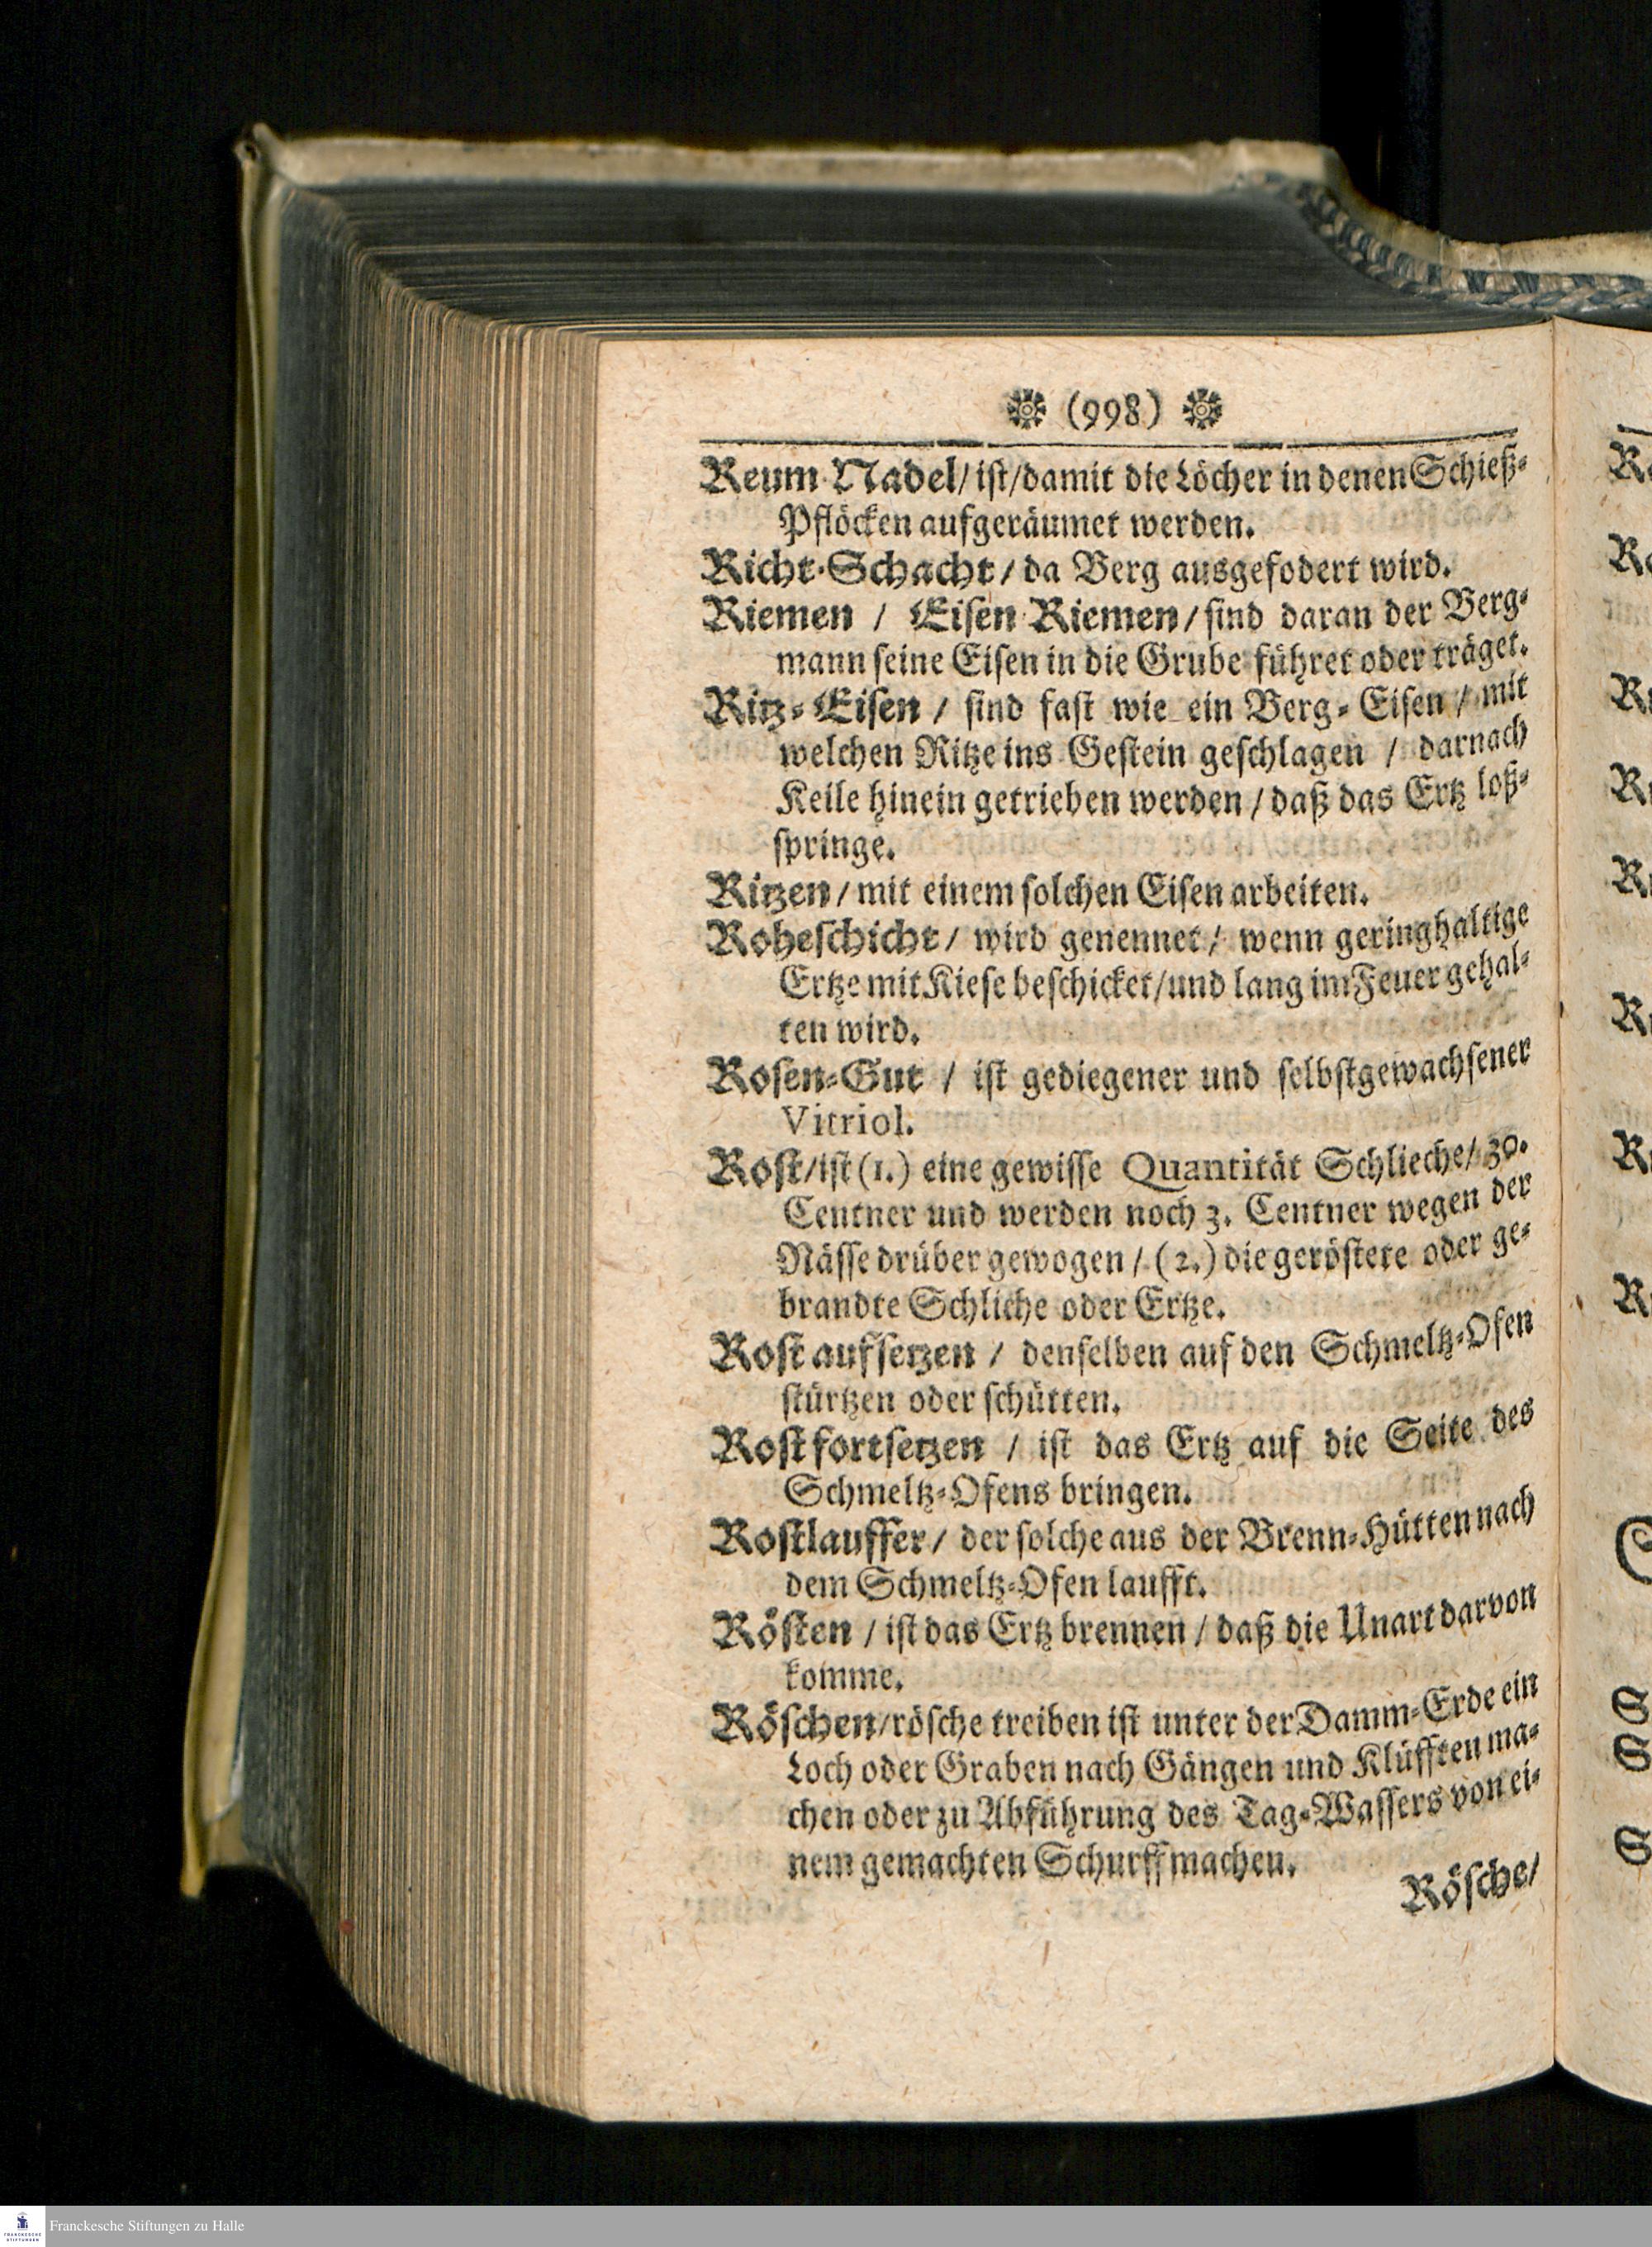 (998)
Reum Nadel/ ist/damit die Löcher in denen Schieß-
Pflöcken aufgeräumet werden.
Richt-Schacht/ da Berg ausgefodert wird.
Riemen / Eisen Riemen/ sind daran der Berg-
mann seine Eisen in die Grube führet oder träget.
Ritz-Eisen / sind fast wie ein Berg-Eisen / mit
welchen Ritze ins Gestein geschlagen / darnach
Keile hinein getrieben werden / daß das Ertz loß-
springe.
Ritzen/ mit einem solchen Eisen arbeiten.
Roheschicht/ wird genennet/ wenn geringhaltige
Ertze mit Kiese beschicket/und lang im Feuer gehal-
ten wird.
Rosen-Gut / ist gediegener und selbstgewachsener
Vitriol.
Rost/ist (1.) eine gewisse Quantität Schlieche/ 30.
Centner und werden noch 3. Centner wegen der
Nässe drüber gewogen / (2.) die geröstete oder ge-
brandte Schliche oder Ertze.
Rost aufsetzen / denselben auf den Schmeltz-Ofen
stürtzen oder schütten.
Rost fortsetzen / ist das Ertz auf die Seite des
Schmeltz-Ofens bringen.
Rostlauffer/ der solche aus der Brenn-Hütten nach
dem Schmeltz-Ofen laufft.
Rösten / ist das Ertz brennen / daß die Unart darvon
komme.
Röschen/rösche treiben ist unter der Damm-Erde ein
Loch oder Graben nach Gängen und Klüfften ma-
chen oder zu Abführung des Tag-Wassers von ei-
nem gemachten Schurff machen.
Rösche/
Franckesche Stiftungen zu Halle